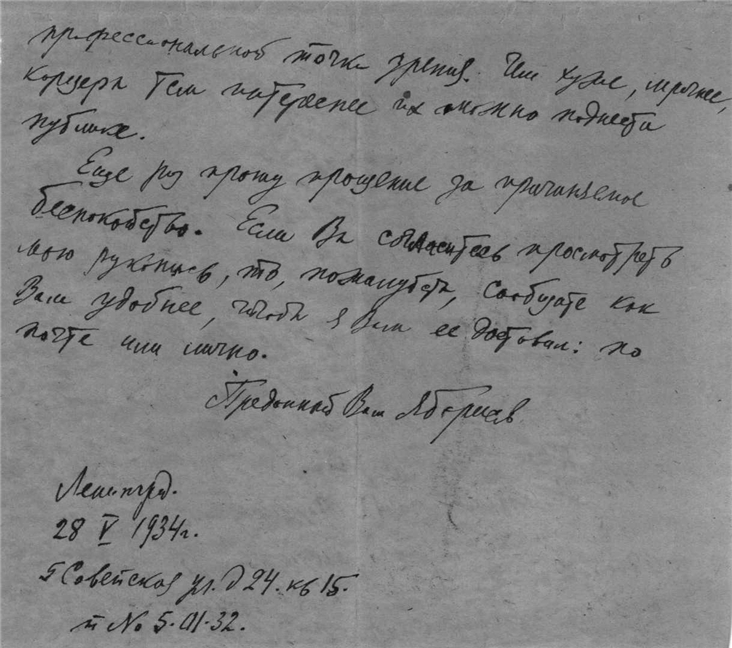 профессиональной точки зрения. Чем хуже, мрачнее,
тем интереснее их можно поднести
публике.
Еще раз прошу прощение за причиняемое
беспокойство. Если Вы согласитесь просмотреть
мою рукопись, то, пожалуйста, сообщите как
Вам удобнее, чтобы я Вам ее доставил: по
почте или лично.
Преданный Вам
Ленинград.
28 V 1934г.
Советская ул. д 24. кв 15.
т No 5-01-32.